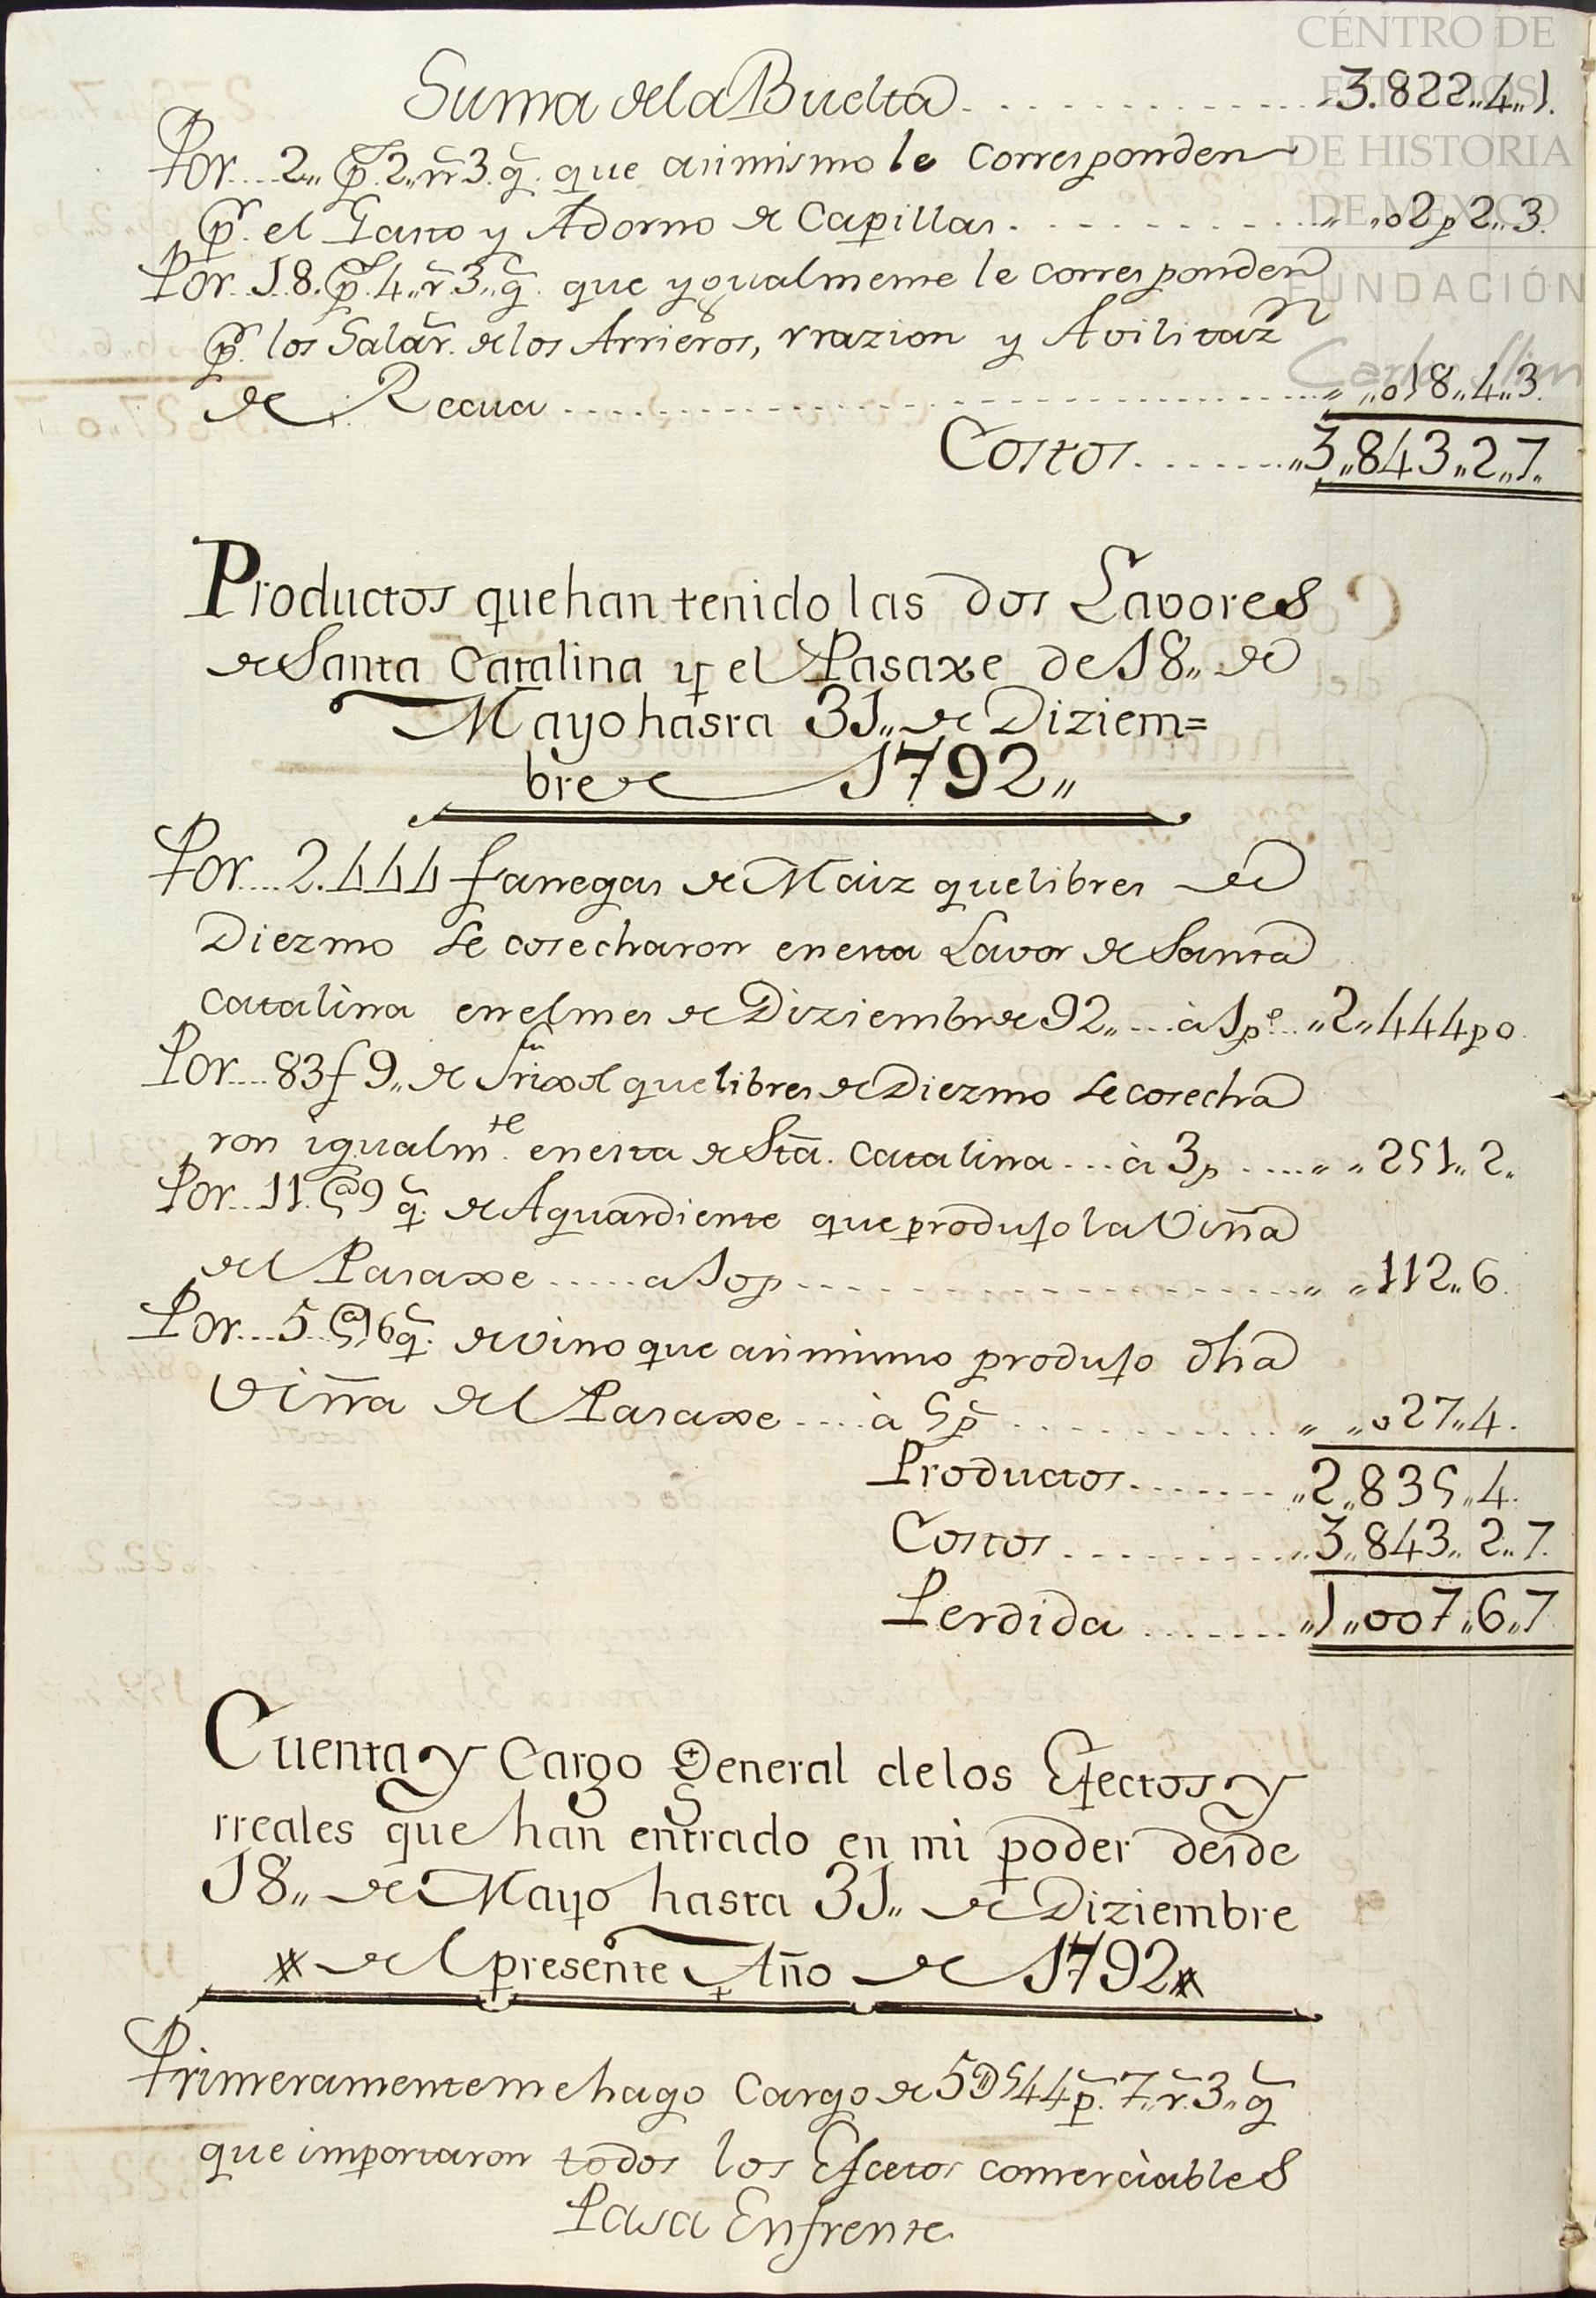 CENTRO DE
ESTUDIOS
DE HISTORIA
DE MEXICO
FUNDACIÓN
Carlos Slim
Suma de la Buelta 3.822,,4,,1.
Por 2,, p.s 2,, rr.s 3. g.s que asimismo le Corresponden
p.a el Gasto y Adorno de Capillas ,, ,,02p2,,3.
Por 18. p.s 4,, r.s 3,, g.s que ygualmente le corresponden
p.a los Salar.s de los Arrieros, rrazion y Avilitaz.n
de Recua ,, ,,018,,4,,3.
Costos ,,3,,843,,2,,7.
Productos que han tenido las dos Lavores
de Santa Catalina y el Pasaxe de 18,, de
Mayo hasta 31,, de Diziem=
bre de 1792,,
Por 2.444 fanegas de Maiz que libres de
Diezmo se cosecharon en esta Lavor de Santa
Catalina en el mes de Diziembre de 92,, à 1 p.e ,,2,,444p0
Por 83 f 9,, de Frixol que libres de Diezmo se cosecha
ron igualm.te en esta de Sta. Catalina à 3p ,, ,,251,,2,,
Por 11. @ 9 q.s de Aguardiente que produjo la Viña
del Pasaxe a 10p ,, ,,112,,6.
Por 5 @ 16 q.s de vino que asimismo produjo dha
Viña del Pasaxe à 5 p.s ,, ,,027,,4.
Productos ,,2,,835,,4.
Costos ,,3,,843,,2,,7.
Perdida ,,1,,007,,6,,7
Cuenta y Cargo General de los Efectos y
rreales que han entrado en mi poder desde
18,, de Mayo hasta 31,, de Diziembre
del presente Año de 1792
Primeramente me hago Cargo de 5D544 p.s 7,, r.s 3,, g.s
que importaron todos los Efectos comerciables
Pasa Enfrente